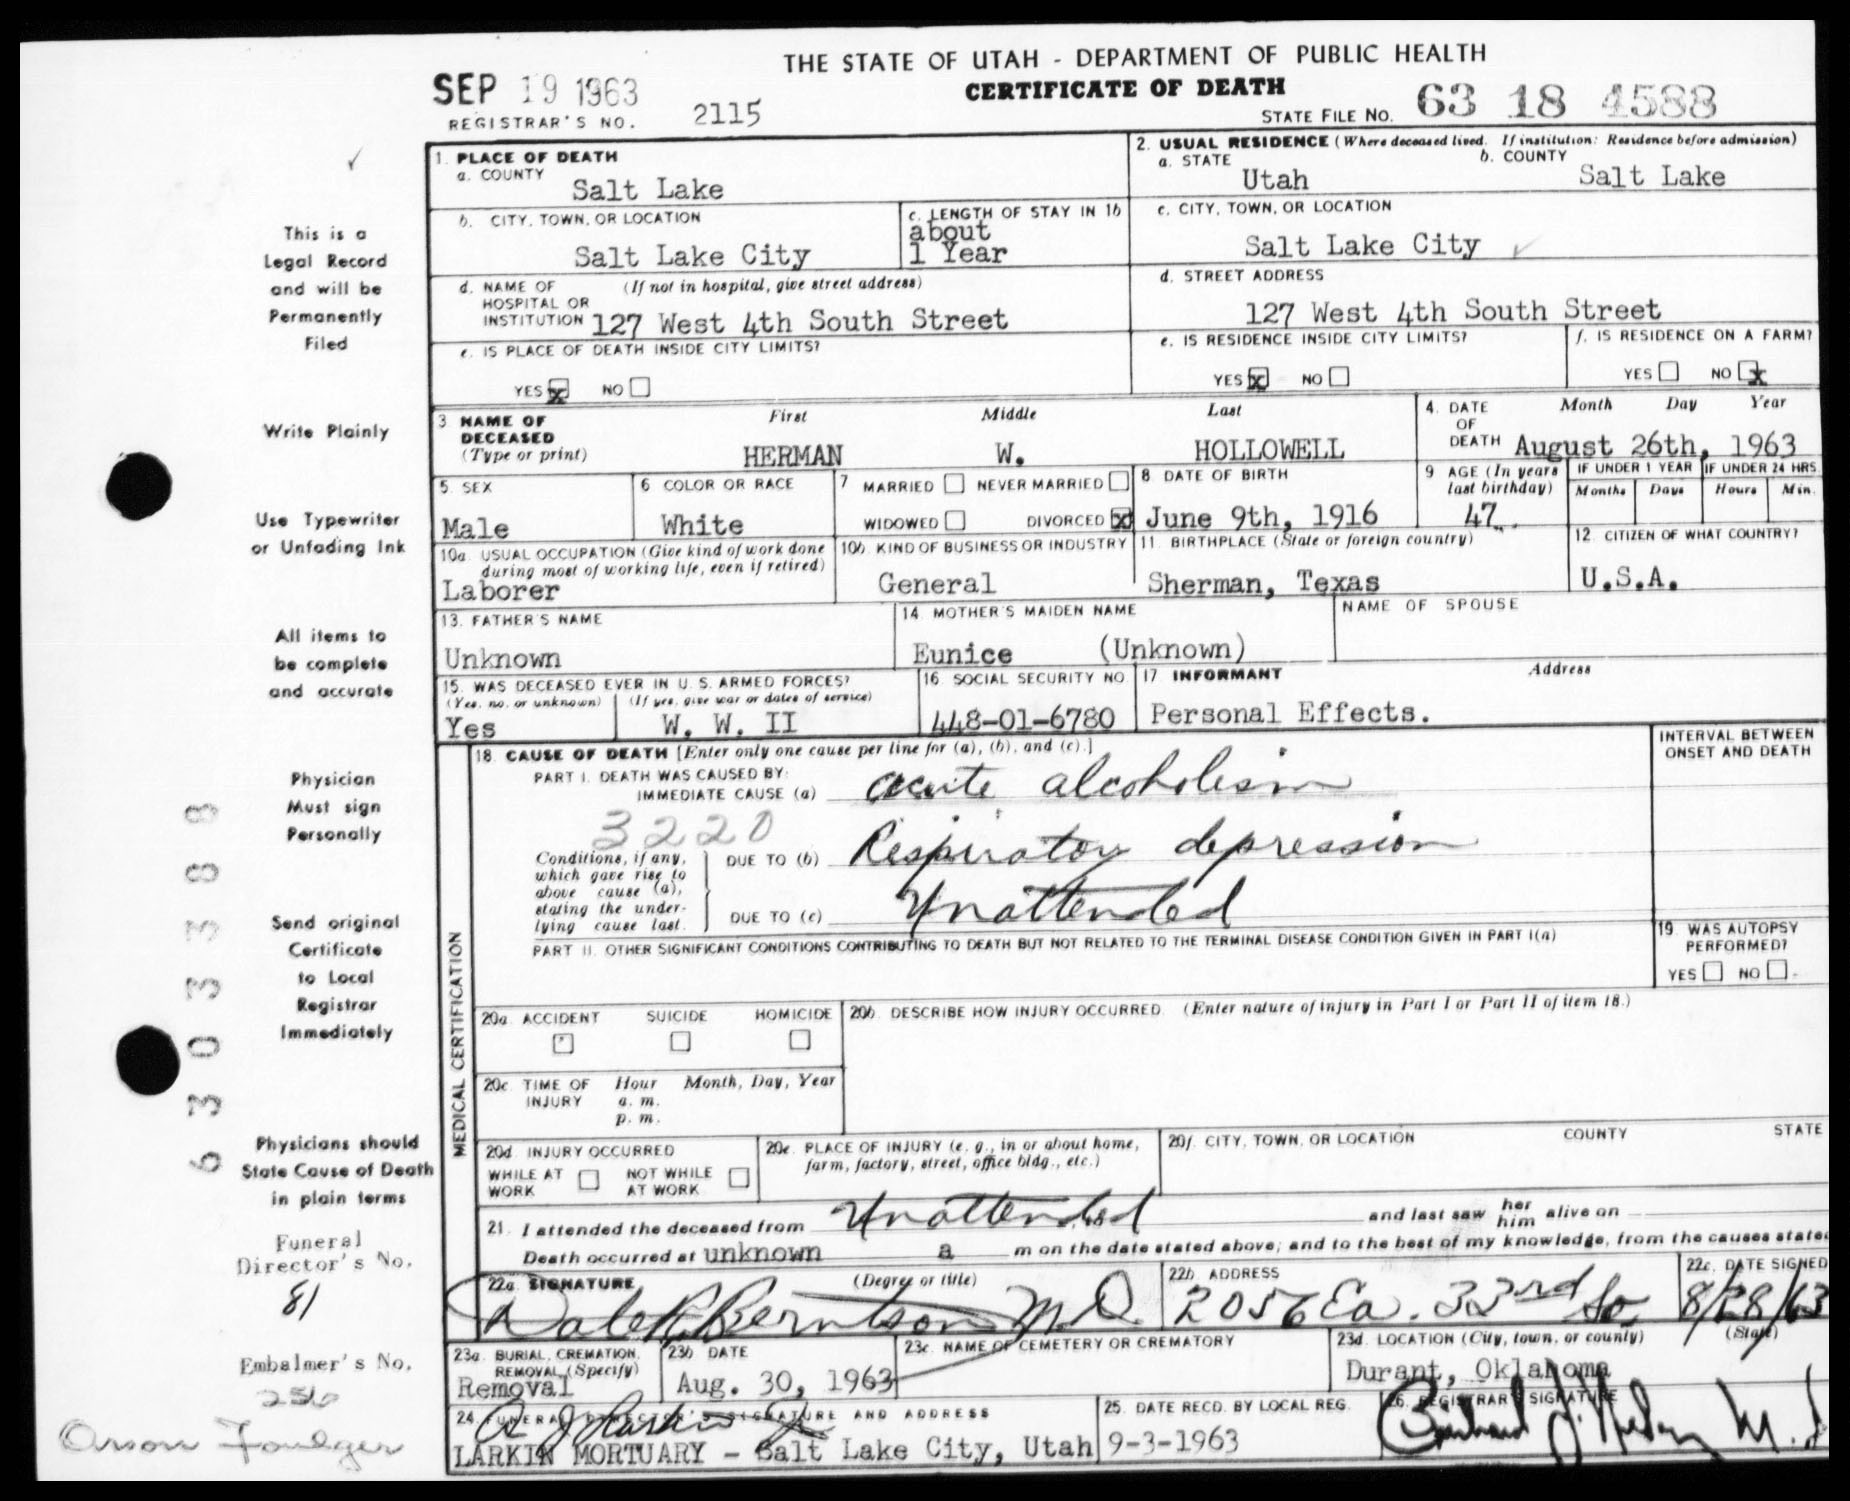 THE STATE OF UTAH - DEPARTMENT OF PUBLIC HEALTH
CERTIFICATE OF DEATH
SEP 19 1963
REGISTRAR'S NO. 2115
STATE FILE NO. 63 18 4588
This is a
Legal Record
and will be
Permanently
Filed
Write Plainly
Use Typewriter
or Unfading Ink
All items to
be complete
and accurate
Physician
Must sign
Personally
Send original
Certificate
to Local
Registrar
Immediately
Physicians should
State Cause of Death
in plain terms
Funeral
Director's No.
81
Embalmer's No.
256
Orson Foulger
6303388
1. PLACE OF DEATH
a. COUNTY
Salt Lake
2. USUAL RESIDENCE (Where deceased lived. If institution: Residence before admission)
a. STATE
Utah
b. COUNTY
Salt Lake
b. CITY, TOWN, OR LOCATION
Salt Lake City
c. LENGTH OF STAY IN 1b
about
1 Year
c. CITY, TOWN, OR LOCATION
Salt Lake City
d. NAME OF (If not in hospital, give street address)
HOSPITAL OR
INSTITUTION 127 West 4th South Street
d. STREET ADDRESS
127 West 4th South Street
e. IS PLACE OF DEATH INSIDE CITY LIMITS?
YES x NO
e. IS RESIDENCE INSIDE CITY LIMITS?
YES x NO
f. IS RESIDENCE ON A FARM?
YES NO x
3. NAME OF
DECEASED
(Type or print)
First Middle Last
HERMAN W. HOLLOWELL
4. DATE
OF
DEATH
Month Day Year
August 26th, 1963
5. SEX
Male
6 COLOR OR RACE
White
7 MARRIED NEVER MARRIED
WIDOWED DIVORCED x
8 DATE OF BIRTH
June 9th, 1916
9 AGE (In years
last birthday)
47
IF UNDER 1 YEAR
Months Days
IF UNDER 24 HRS.
Hours Min.
10a. USUAL OCCUPATION (Give kind of work done
during most of working life, even if retired)
Laborer
10b. KIND OF BUSINESS OR INDUSTRY
General
11. BIRTHPLACE (State or foreign country)
Sherman, Texas
12. CITIZEN OF WHAT COUNTRY?
U.S.A.
13. FATHER'S NAME
Unknown
14. MOTHER'S MAIDEN NAME
Eunice (Unknown)
NAME OF SPOUSE
15. WAS DECEASED EVER IN U. S. ARMED FORCES?
(Yes, no, or unknown) (If yes, give war or dates of service)
Yes W. W. II
16. SOCIAL SECURITY NO.
448-01-6780
17. INFORMANT Address
Personal Effects.
MEDICAL CERTIFICATION
18. CAUSE OF DEATH [Enter only one cause per line for (a), (b), and (c).]
PART I. DEATH WAS CAUSED BY:
IMMEDIATE CAUSE (a) acute alcoholism
INTERVAL BETWEEN
ONSET AND DEATH
3220
Conditions, if any,
which gave rise to
above cause (a),
stating the under-
lying cause last.
DUE TO (b) Respiratory depression
DUE TO (c) Unattended
PART II. OTHER SIGNIFICANT CONDITIONS CONTRIBUTING TO DEATH BUT NOT RELATED TO THE TERMINAL DISEASE CONDITION GIVEN IN PART I(a)
19. WAS AUTOPSY
PERFORMED?
YES NO
20a. ACCIDENT SUICIDE HOMICIDE
20b. DESCRIBE HOW INJURY OCCURRED. (Enter nature of injury in Part I or Part II of item 18.)
20c. TIME OF Hour Month, Day, Year
INJURY a. m.
p. m.
20d. INJURY OCCURRED
WHILE AT NOT WHILE
WORK AT WORK
20e. PLACE OF INJURY (e. g., in or about home,
farm, factory, street, office bldg., etc.)
20f. CITY, TOWN, OR LOCATION COUNTY STATE
21. I attended the deceased from Unattended and last saw her him alive on
Death occurred at unknown a m on the date stated above; and to the best of my knowledge, from the causes stated
22a. SIGNATURE (Degree or title)
Dale R. Berntson M.D.
22b. ADDRESS
2056 Ea. 33rd So.
22c. DATE SIGNED
8/28/63
23a. BURIAL, CREMATION,
REMOVAL (Specify)
Removal
23b DATE
Aug. 30, 1963
23c. NAME OF CEMETERY OR CREMATORY
23d. LOCATION (City, town, or county) (State)
Durant, Oklahoma
24. FUNERAL DIRECTOR'S SIGNATURE AND ADDRESS
LARKIN MORTUARY - Salt Lake City, Utah
25. DATE RECD. BY LOCAL REG.
9-3-1963
26. REGISTRAR'S SIGNATURE